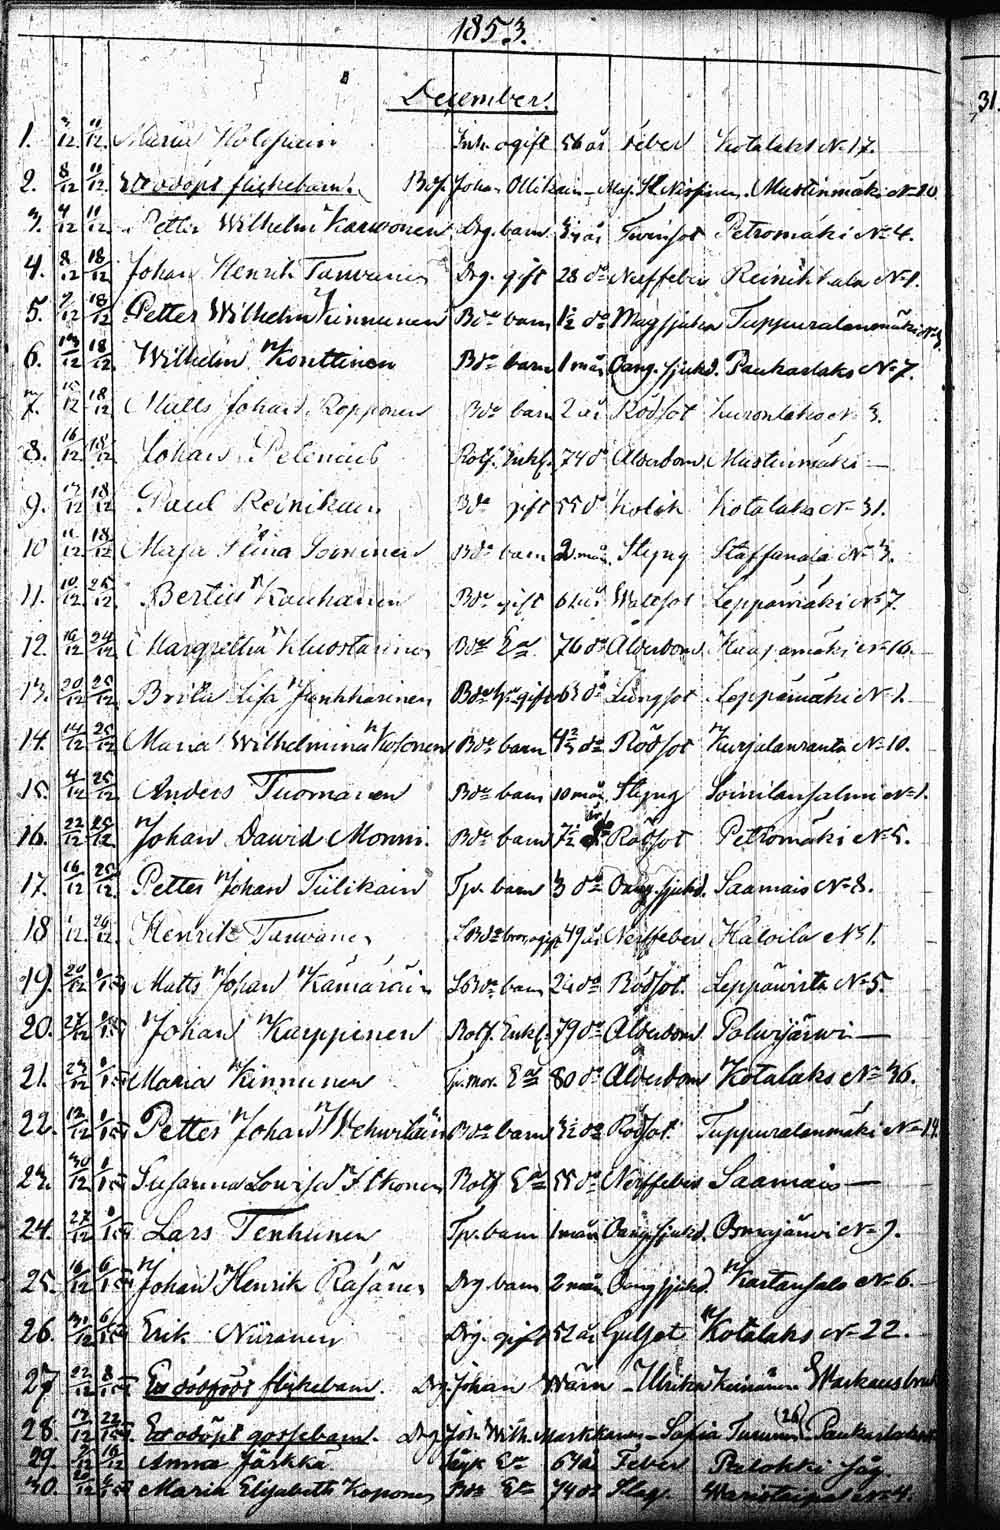 1853.
December.
31.
1. 12 11/12 Maria Holopain Inh. ogift 56 år Feber Kotalaks No 17.
2. 8/12 11/12 Ett odöpt flickebarn. Bdf. Johan Ollikain - Maj. St. Mustinmäki No 10
3. 4/12 11/12 Petter Wilhelm Karwonen Drg. barn 3/4 år Twinsot Petromäki No 4.
4. 8/12 18/12 Johan Henrik Tarwanen Drg. gift 28 do Nerffeber Reinikkala No 1.
5. 7/12 18/12 Petter Wilhelm Kinnunen Bde barn 1½ do Magsjuka Tuppuralanmäki No 3.
6. 13/12 18/12 Wilhelm Konttinen Bde barn 1 mån Oang. sjukd. Paukarlaks No 7.
7. 15/12 18/12 Matts Johan Ropponen Bde barn 2 år Rödsot No 3.
8. 16/12 18/12 Johan Pelenius Rotf. Enkl. 74 do Ålderdom Mustinmäki —
9. 13/12 18/12 Paul Reinikain Bde gift 55 do Kolik Kotalaks No 31.
10 11/12 18/12 Maja Stina Soininen Bde barn 2 mån. Styng Staffanala No 3.
11. 10/12 25/12 Bertil Kauhanen Bde gift 62 år Wattsot Leppämäki No 7.
12. 19/12 24/12 Margretha Kluostarinen Bde Ea 76 do Ålderdom Haapamäki No 16.
13. 20/12 25/12 Brita Lisa Junkkarinen Bde hu gift 63 do Lungsot Leppämäki No 1.
14. 14/12 25/12 Maria Wilhelmina Kosonen Bde barn 4⅔ do Rödsot Kurjalanranta No 10.
15. 4/12 25/12 Anders Tuomanen Bde barn 10 mån. Styng Soinilansalmi No 1.
16. 22/12 25/12 Johan Dawid Monni. Bde barn 7½ år Rödsot Petromäki No 5.
17. 16/12 25/12 Petter Johan Tiilikain Tp. barn 3 do Oang. sjukd. Saamais No 8.
18 12 26/12 Henrik Tarwanen LBdebror, ogift 49 år Nerffeber Haloila No 1.
19. 20/12 1/1 54 Matts Johan Kämäräin LBde barn 2¼ do Rödsot. Leppäwirta No 5.
20. 27/12 1/1 54 Johan Karppinen Rotf. Enkl. 79 do Ålderdom Polwijärwi —
21. 23/12 1/1 54 Maria Kinnunen Tp. mor. Ea 80 do Ålderdom Kotalaks No 36.
22. 12/12 1/1 54 Petter Johan Wehwiläin Bde barn 3½ do Rödsot. Tuppuralanmäki No 14.
23. 30/12 1/1 54 Susanna Lowisa Itkonen Rotf Ea 55 do Nerffeber Saamais —
24. 27/12 1/1 54 Lars Tenhunen Tp. barn 1 mån Oang. sjukd. Osmajärwi No 9.
25. 16/12 6/1 54 Johan Henrik Räsänen Drg barn 2 mån Oang sjukd. Kartansalo No 6.
26. 31/12 6/1 54 Erik Niiranen Drg. gift 52 år Gulsot Kotalaks No 22.
27 22/12 8/1 54 Ett dödfödt flickebarn. Drg. Johan Wärn - Ulrika Keinänen Warkausbruk
28. 17/12 22/1 54 Ett odöpt gossebarn. Drg Joh. Wilh. Markkanen - Sofia Turunen (26) Paukarlaks
29. 16/12 Anna Järkkä. Ea 63 å Feber Palokki såg.
30. 20/12 Maria Elisabeth Koponen Bde Ea 74 do Slag. Waristaipal No 4.